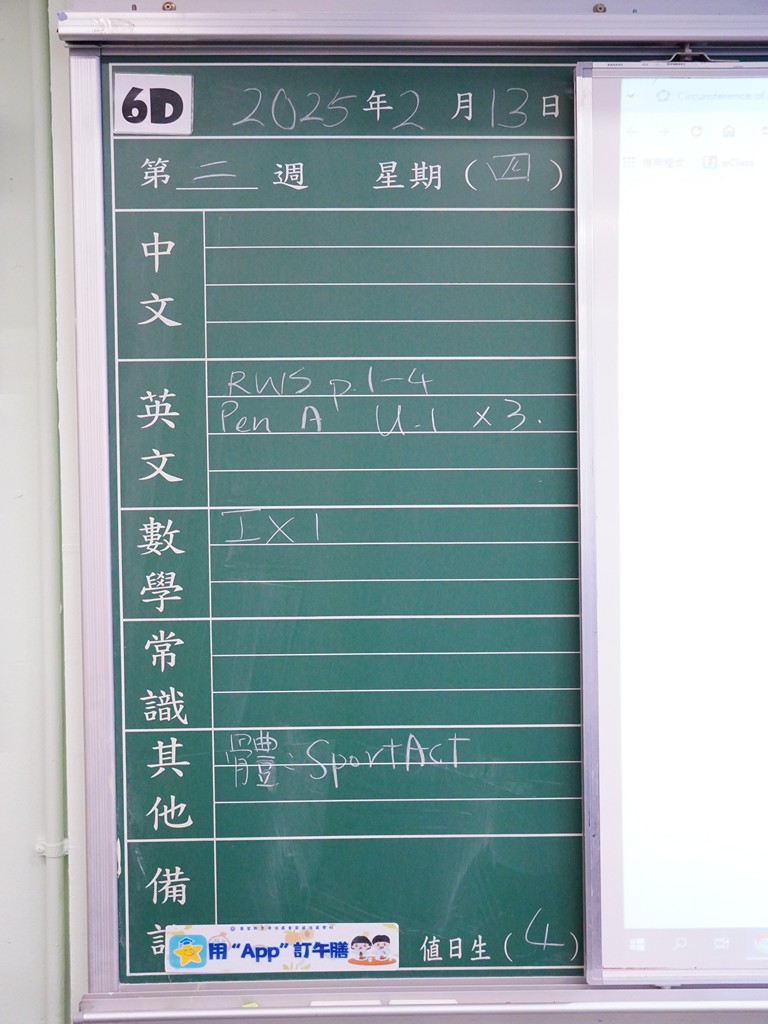 6D
2025年2月13日
第二週 星期(四)
中文
英文
RWS p.1-4
Pen A U.1 x3.
數學
工X1
常識
其他
體:SportAct
備
用“App”訂午膳
值日生(4)
Circumference of
eClass